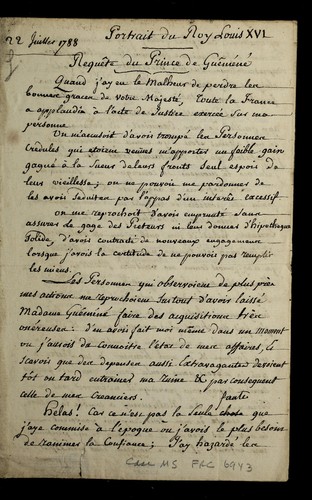 22 Juillet 1788
Portrait du Roy Louis XVI
Requête du Prince de Guéméné
Quand j'ay eu le Malheur de perdre les
bonnes graces de Votre Majesté, toute la France
a applaudia à l'acte de Justice exercée sur ma
personne.
On m'accusoit d'avoir trompé les Personnes
Credules qui etoient venües m'apporter un faible gain
gagné à la Sueur de leurs fronts Seul espoir de
leur vieillesse; on ne pouvoit me pardonner de
les avoir Seduites par l'appas d'un interêt excessif
on me reprochoit d'avoir emprunté Sans
assurer de gage des Preteurs ni leur donner d'hipotheque
Solide, d'avoir contracté de nouveaux engagements
lorsque j'avois la certitude de ne pouvoir pas remplir
les miens.
Les Personnes qui observoient de plus près
mes actions me reprochoient Surtout d'avoir laissé
Madame Guéméné faire des acquisitions très
onéreuses: d'en avoir fait moi même dans un moment
ou j'aurois du connoître l'état de mes affaires, je
Scavois que des depenses aussi Extravagantes devoient
tôt ou tard entrainer ma ruine & par consequent
celle de mes Creanciers.
faute
Helas! Car ce n'est pas la Seule chose que
j'aye commise à l'époque ou j'avois le plus besoin
de ranimer la Confiance; J'ay hazardé les
Case MS FRC 6943